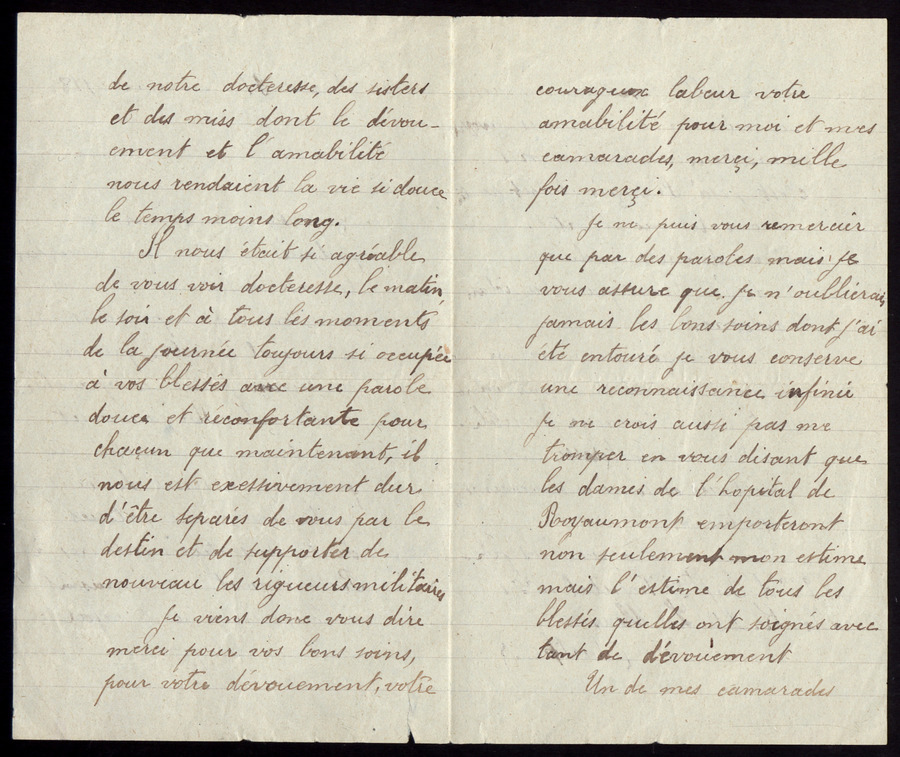 de notre docteresse, des sisters
et des miss dont le dévou-
ement et l'amabilité
nous rendaient la vie si douce
le temps moins long.
Il nous était si agréable
de vous voir docteresse, le matin
le soir et à tous les moments
de la journée toujours si occupée
à vos blessés avec une parole
douce et reconfortante pour
chaçun que maintenant, il
nous est exessivement dur
d'être séparés de vous par le
destin et de supporter de
nouveau les rigueurs militaires
Je viens donc vous dire
merci pour vos bons soins,
pour votre dévouement, votre
courageux labeur votre
amabilité pour moi et mes
camarades, merçi, mille
fois merçi.
Je ne puis vous remercier
que par des paroles mais je
vous assure que je n'oublierais
jamais les bons soins dont j'ai
été entouré je vous conserve
une reconnaissance infinie
Je ne crois aussi pas me
tromper en vous disant que
les dames de l'hopital de
Royaumont emporteront
non seulement mon estime
mais l'estime de tous les
blessés quelles ont soignés avec
tant de dévouèment
Un de mes camarades